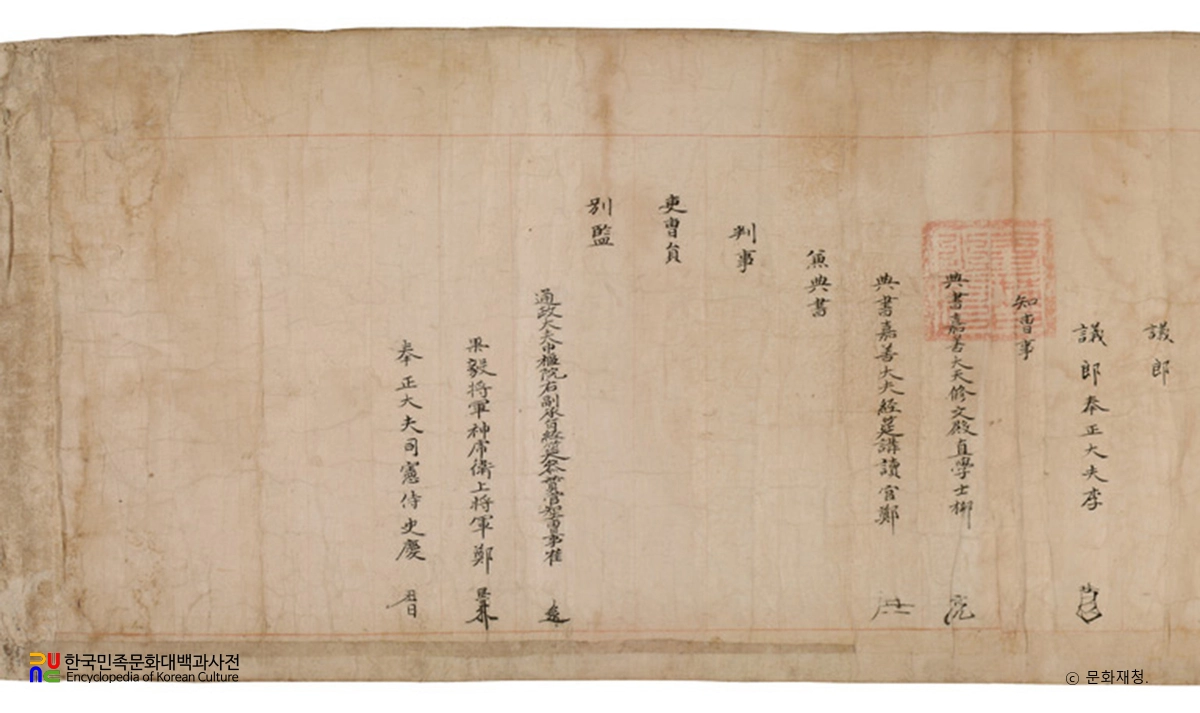 議郎
議郎奉正大夫李
知曹事
典書嘉善大夫修文殿直學士柳
典書嘉善大夫經筵講讀官鄭
兼典書
判事
吏曹員
別監
通政大夫中樞院右副承旨經筵參贊官知吏曹事崔
果毅將軍神虎衛上將軍鄭
奉正大夫司憲侍史慶
한국민족문화대백과사전
Encyclopedia of Korean Culture
ⓒ 문화재청.